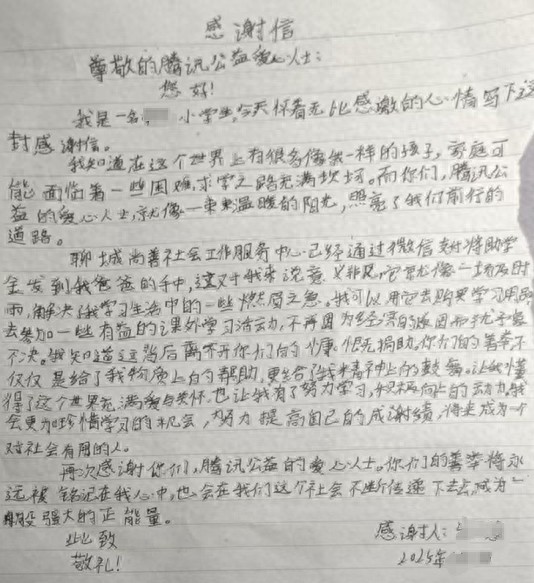 感谢信
尊敬的腾讯公益爱心人士：
您好！
我是一名 小学生，今天怀着无比感激的心情写下这
封感谢信。
我知道在这个世界上有很多像我一样的孩子，家庭可
能面临着一些困难，求学之路充满坎坷。而你们，腾讯公
益的爱心人士，就像一束束温暖的阳光，照亮了我们前行的
道路。
聊城尚善社会工作服务中心已经通过微信支付将助学
金发到我爸爸的手中，这对于我来说意义非凡，它就像一场及时
雨，解决了我学习生活中的一些燃眉之急。我可以用它去购买学习用品
去参加一些有益的课外学习活动，不再因为经济的原因而犹豫
不决。我知道这背后离不开你们的慷慨无私捐助，你们的善举不
仅仅是给了我物质上的帮助，更给了我精神上的鼓舞。让我懂
得了这个世界充满爱与关怀，也让我有了努力学习，积极向上的动力。我
会更加珍惜学习的机会，努力提高自己的成绩，将来成为一个
对社会有用的人。
再次感谢你们，腾讯公益的爱心人士。你们的善举将永
远被铭记在我心中，也会在我们这个社会不断传递下去，成为一
股强大的正能量。
此致
敬礼！
感谢人：
2025年